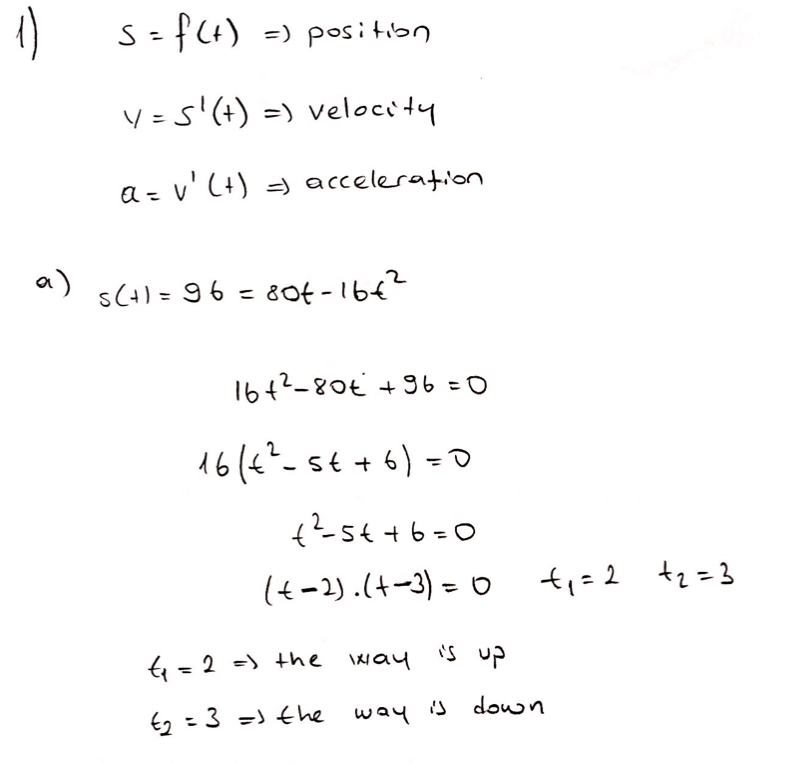 1) s = f(t) => position
v = s'(t) => velocity
a = v'(t) => acceleration
a) s(t) = 96 = 80t - 16t²
16t² - 80t + 96 = 0
16(t² - 5t + 6) = 0
t² - 5t + 6 = 0
(t - 2).(t - 3) = 0 t₁ = 2 t₂ = 3
t₁ = 2 => the way is up
t₂ = 3 => the way is down